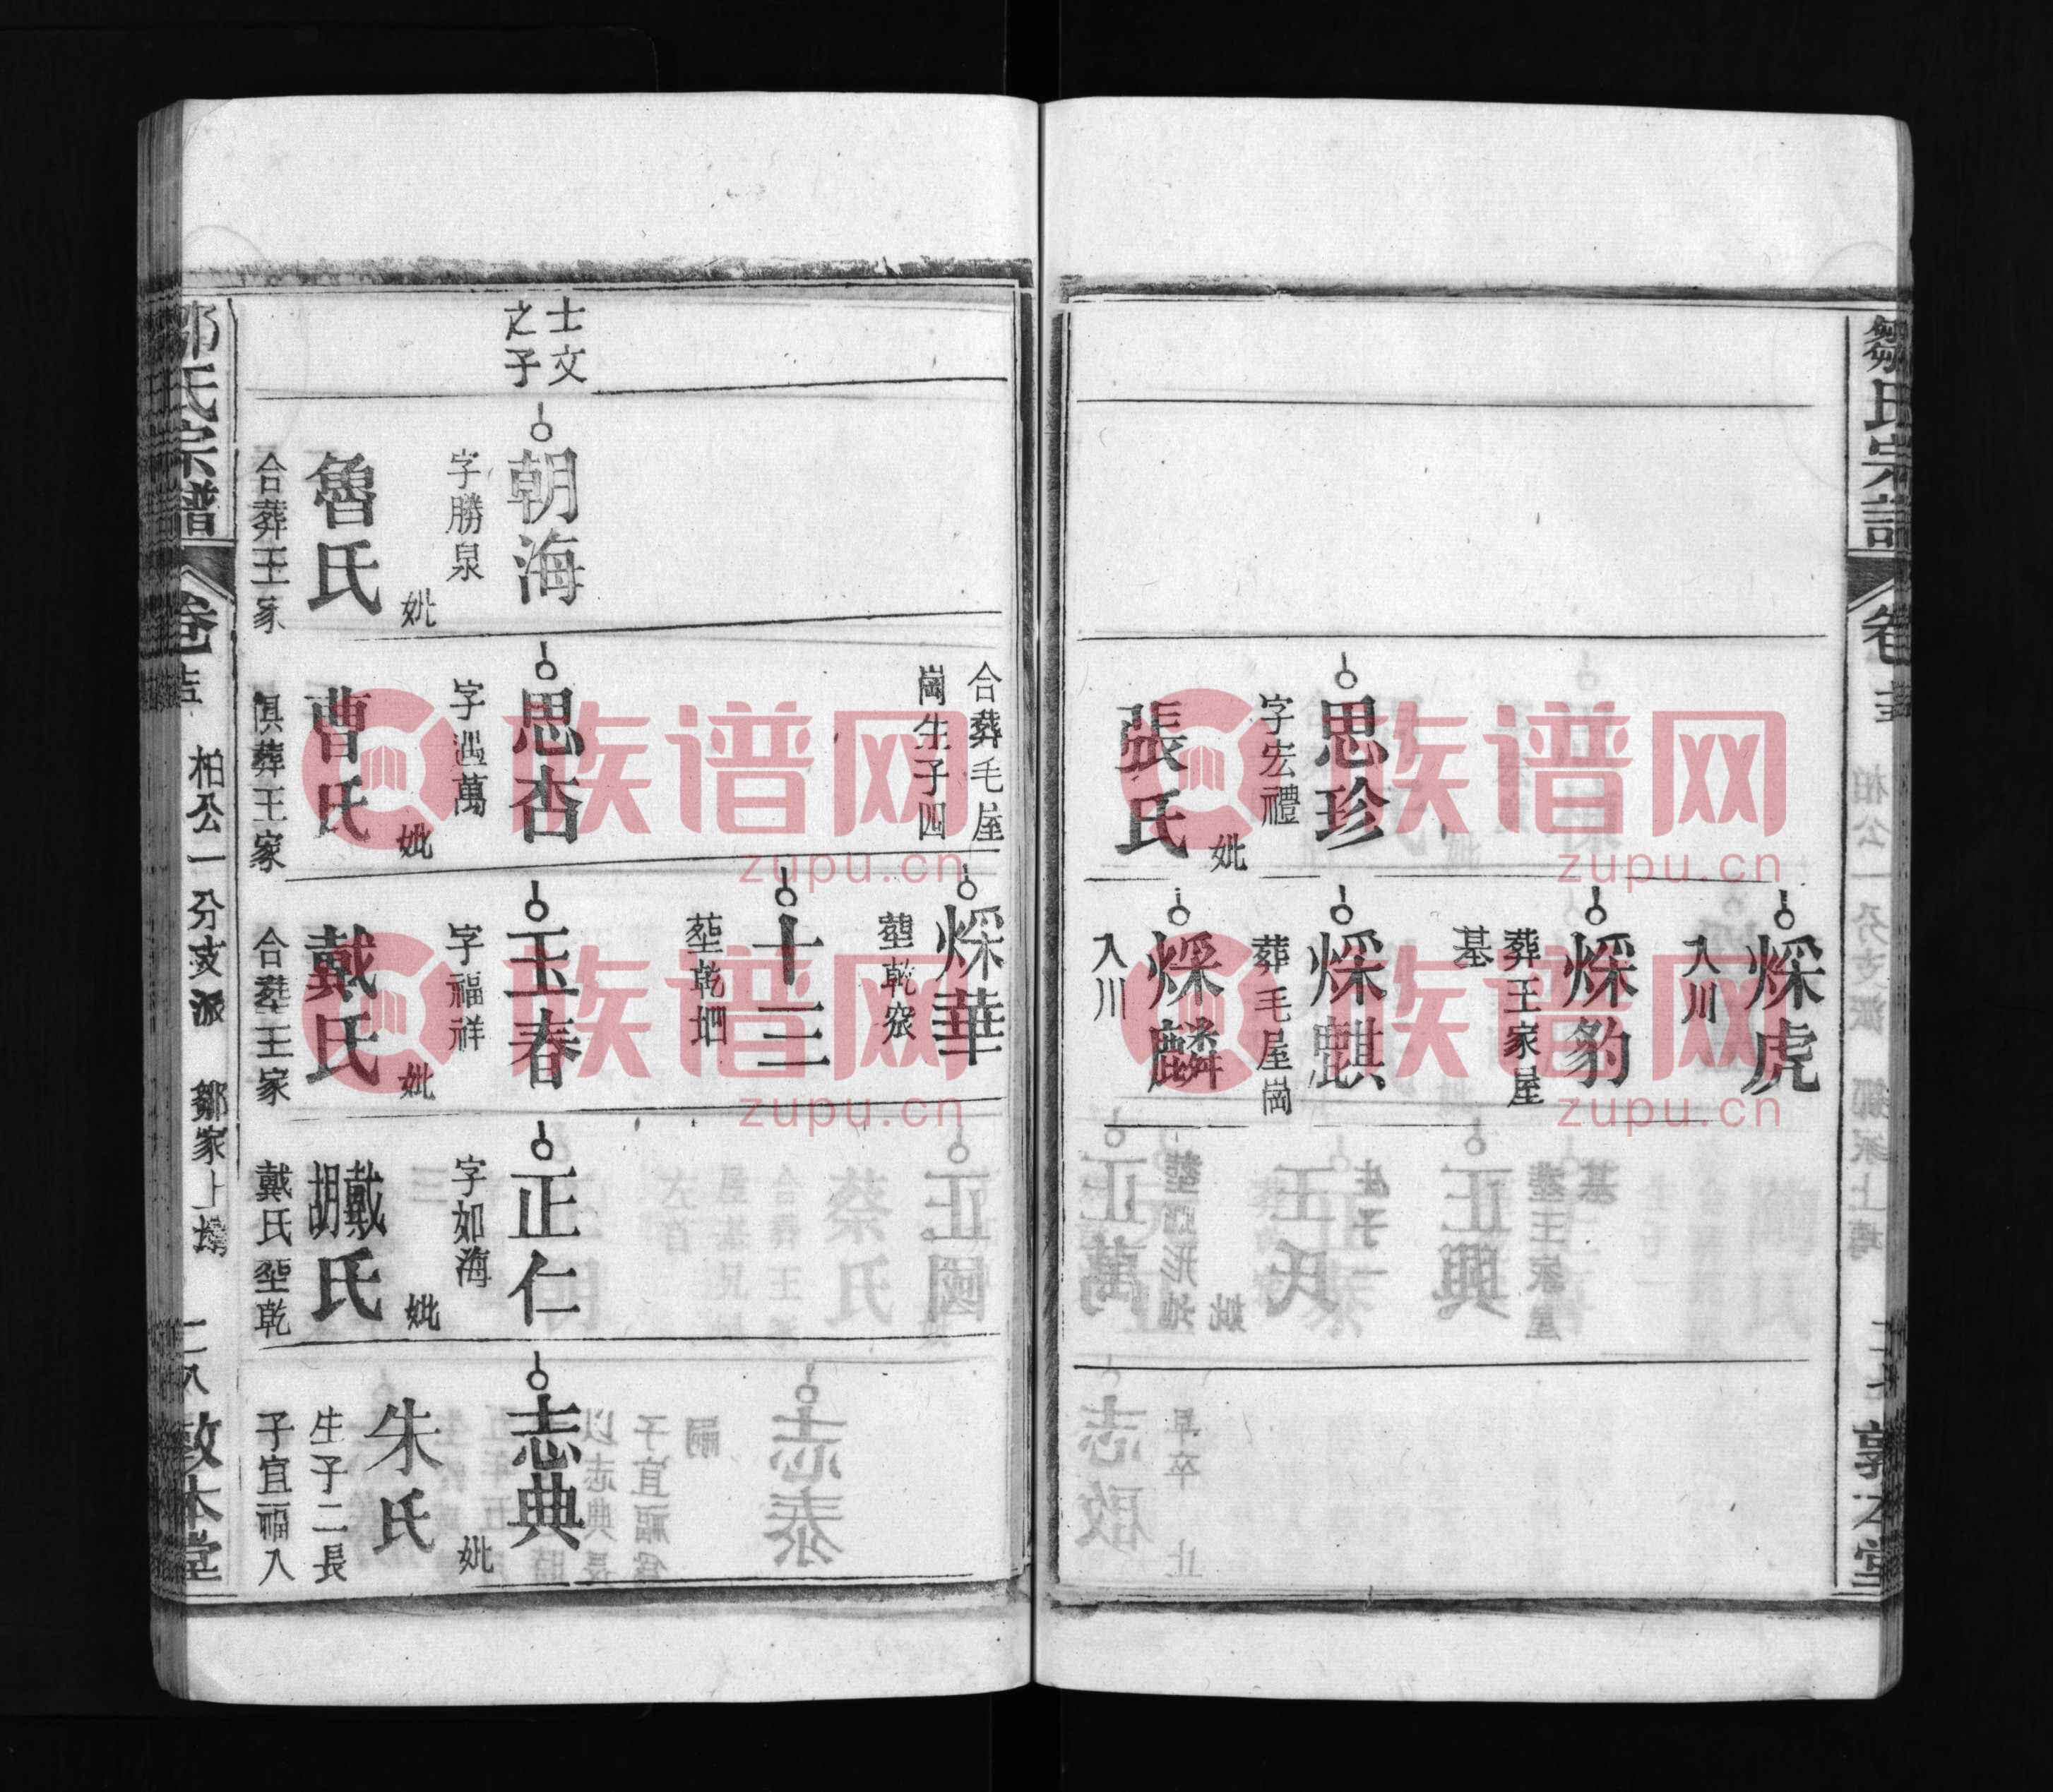 鄒氏宗譜
卷
柏公一分支派
鄒家上塆
敦本堂
思珍
字宏禮
妣
張氏
㷓虎
入川
㷓豹
葬王家屋
基
㷓麒
葬毛屋崗
㷓麟
入川
合葬毛屋
崗生子四
㷓華
塟乾窊
十三
塟乾地
士文
之子
朝海
字勝泉
妣
魯氏
合葬王家
思杏
字遇萬
妣
曹氏
俱葬王家
玉春
字福祥
妣
戴氏
合塟王家
正仁
字如海
妣
戴胡氏
戴氏塟乾
志典
妣
朱氏
生子二長
子宜福入
鄒氏宗譜
卷
柏公一分支派
鄒家上塆
二八
敦本堂
族谱网
zupu.cn
族谱网
zupu.cn
族谱网
zupu.cn
族谱网
zupu.cn